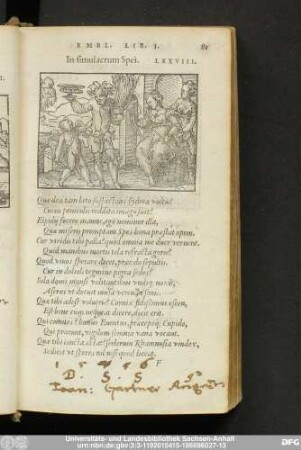 EMBL. LIB. I. 81
In simulacrum Spei. LXXVIII.
Quæ dea tam læto suspectans sydera vultu?
Cuius peniculis reddita imago fuit?
Elpidij fecere manus, ego nominor illa,
Quæ miseris promptam Spes bona præstat opem.
Cur viridis tibi palla? quòd omnia me duce vernent.
Quid manibus mortis tela refracta geris?
Quòd viuos sperare decet, præcido sepultis.
Cur in dolioli tegmine pigra sedes?
Sola domi mansi volitantibus vndique noxis,
Ascræi vt docuit musa verenda senis.
Quæ tibi adest volucris? Cornix fidissimus oscen,
Est bene cùm nequeat dicere, dicit erit.
Qui comites? bonus Euentus, præcepsque Cupido,
Qui præeunt, vigilum somnia vana vocant.
Quæ tibi iuncta astat? scelerum Rhamnusia vindex,
Scilicet vt speres nil nisi quod liceat.
F
D. S. S.
Joan:
Universitäts- und Landesbibliothek Sachsen-Anhalt
urn:nbn:de:gbv:3:3-1192015415-186696027-13
DFG